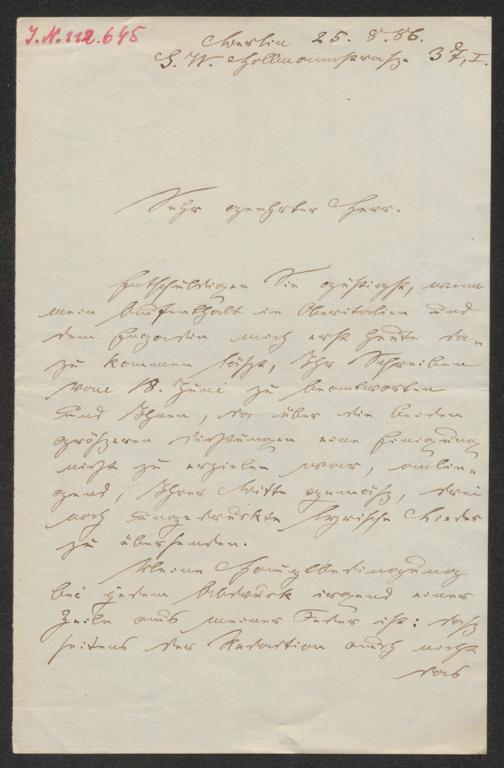 J.N. 112.645
Berlin 25. 8. 86.
S. W. Hollmannstraße 37, I.
Sehr geehrter Herr.
Entschuldigen Sie gütigst, wenn
mein Aufenthalt in Oberitalien und
dem Engadin mich erst heute da-
zu kommen läßt, Ihr Schreiben
vom 18. Juni zu beantworten
und Ihnen, da über die beiden
größeren Dichtungen eine Einigung
nicht zu erzielen war, anlie-
gend, Ihrer Bitte gemäß, drei
noch ungedruckte lyrische Lieder
zu übersenden.
Meine Hauptbedingung
bei jedem Abdruck irgend einer
Zeile aus meiner Feder ist: daß
seitens der Redaction auch nicht
das